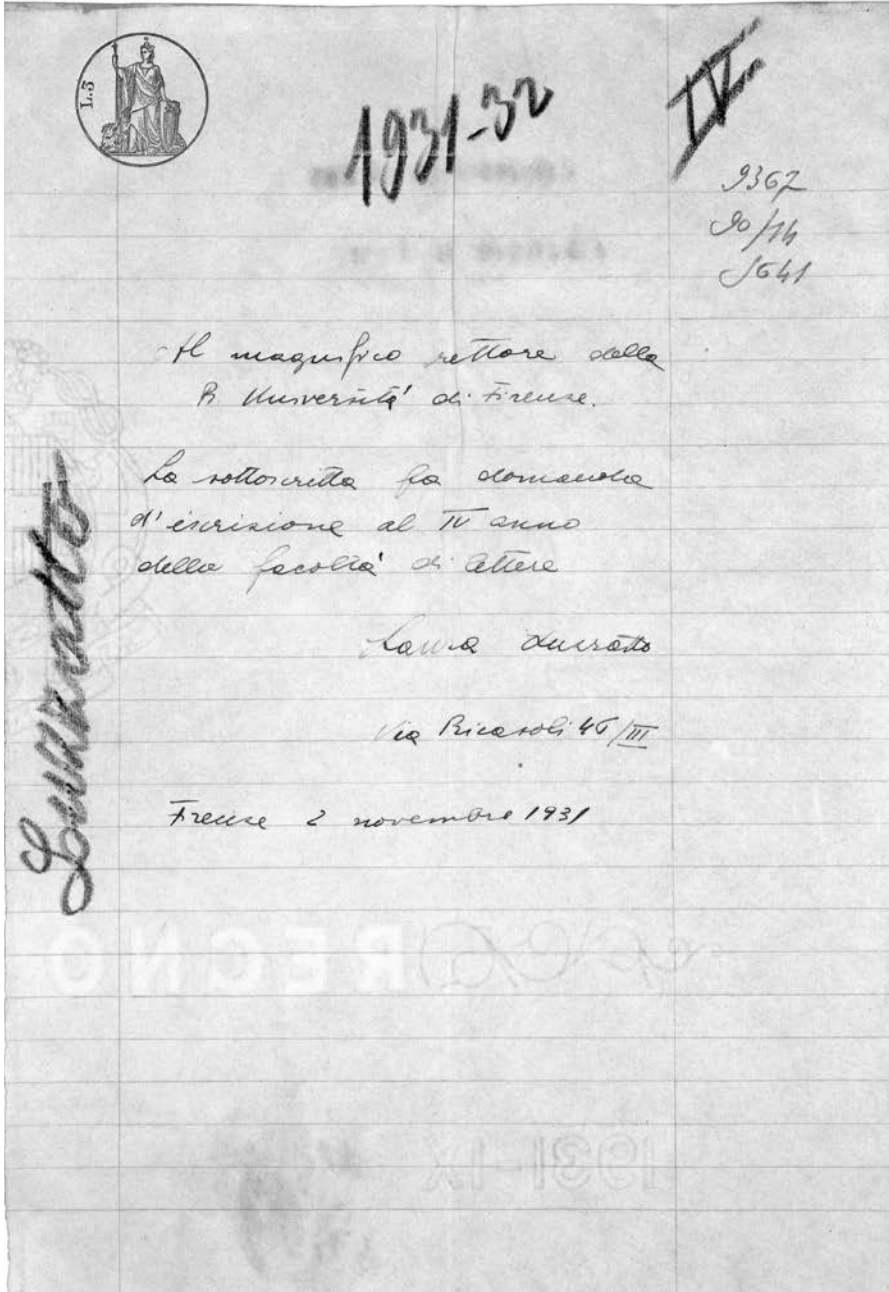 L.3
1931-32
IV
9367
90/14
5641
Al magnifico rettore della
R Università di Firenze.
La sottoscritta fa domanda
d'iscrizione al IV anno
della facoltà di lettere
Laura Luzzatto
Via Ricasoli 46/III
Firenze 2 novembre 1931
Luzzatto
REGNO
1931-IX